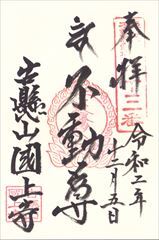 奉拝
令和二年
十二月五日
不動尊
古懸山国上寺